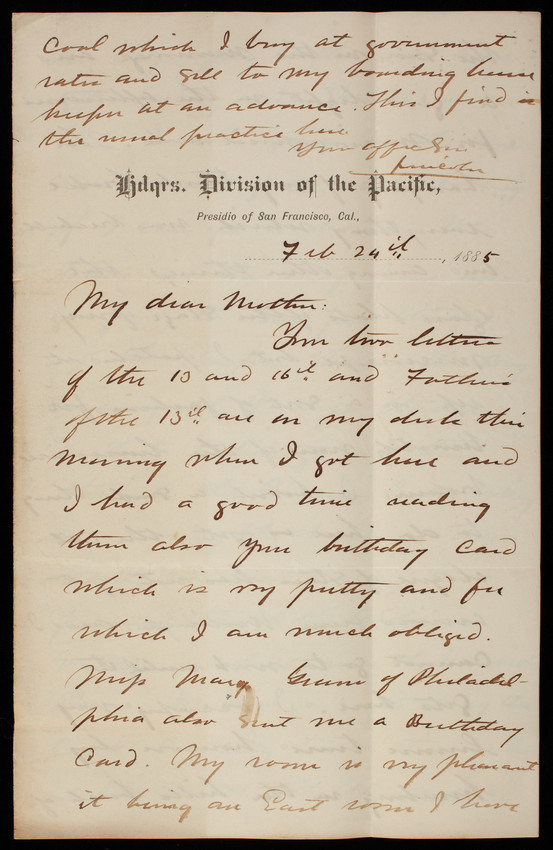 Coal which I buy at government
rates and sell to my boarding house
keeper at an advance. This I find is
the usual practice here
Your affec Son
Lincoln
Hdqrs. Division of the Pacific,
Presidio of San Francisco, Cal.,
Feb 24th, 1885
My dear Mother:
Your two letters
of the 13 and 16th and Father's
of the 13th are on my desk this
morning when I got here and
I had a good time reading
them also your birthday card
which is very pretty and for
which I am much obliged.
Miss Mary of Philadel-
phia also sent me a Birthday
Card. My room is very pleasant
it being an East room I have